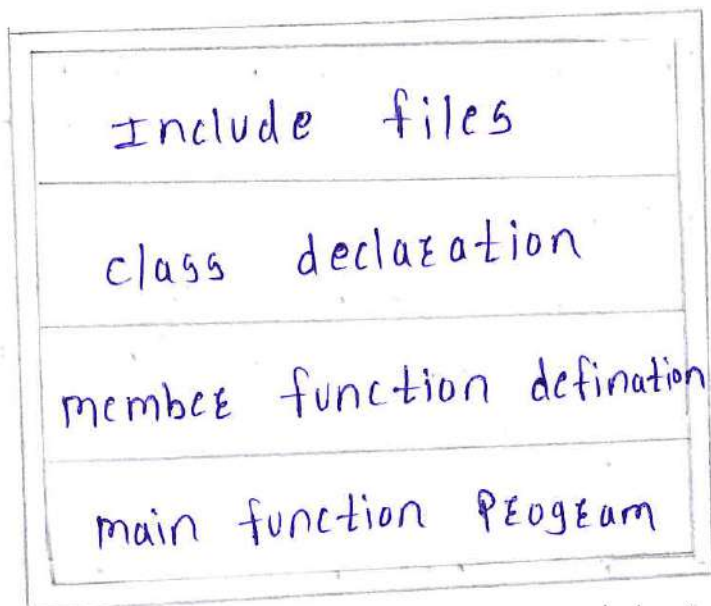 Include files
class declaration
member function defination
main function Program